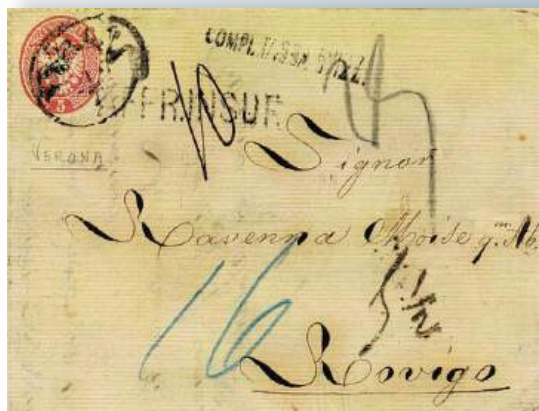 5
AFFR.INSUF.
10
VERONA
Signor
Ravenna Moise q.m Ab.
5 1/2
16
Rovigo